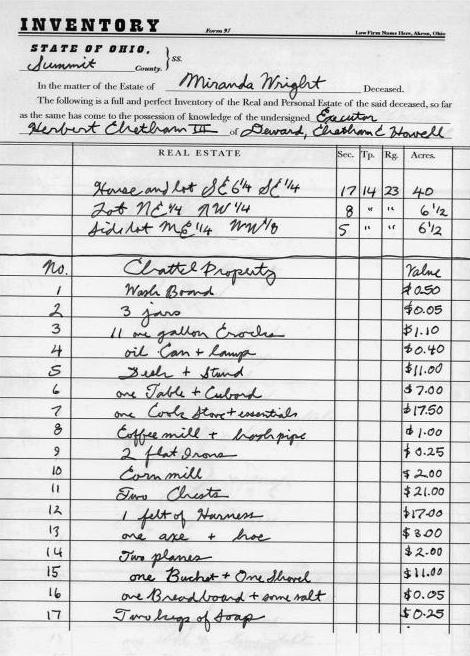 INVENTORY Form 97 Law Firm Name Here, Akron, Ohio
STATE OF OHIO, } SS.
Summit County.
In the matter of the Estate of Miranda Wright Deceased.
The following is a full and perfect Inventory of the Real and Personal Estate of the said deceased, so far
as the same has come to the possession of knowledge of the undersigned Executor
Herbert Chetham III of Deward, Chetham & Howell
REAL ESTATE Sec. Tp. Rg. Acres.
House and lot SE 6 1/4 SE 1/4 17 14 23 40
Lot NE 1/4 NW 1/4 8 " " 6 1/2
Side lot NW 1/8 5 " " 6 1/2
No. Chattel Property Value
1 Wash Board $0.50
2 3 jars $0.05
3 11 one gallon Crocks $1.10
4 oil Can + lamp $0.40
5 Desk + Stand $11.00
6 one Table + Cubord $7.00
7 one Cook Stove + essentials $17.50
8 Coffee mill + pipe $1.00
9 2 flat Irons $0.25
10 Corn mill $2.00
11 Two Chests $21.00
12 1 felt of Harness $17.00
13 one axe + hoe $3.00
14 Two planes $2.00
15 one Bucket + One Shovel $11.00
16 one Breadboard + some salt $0.05
17 Two kegs of Soap $0.25